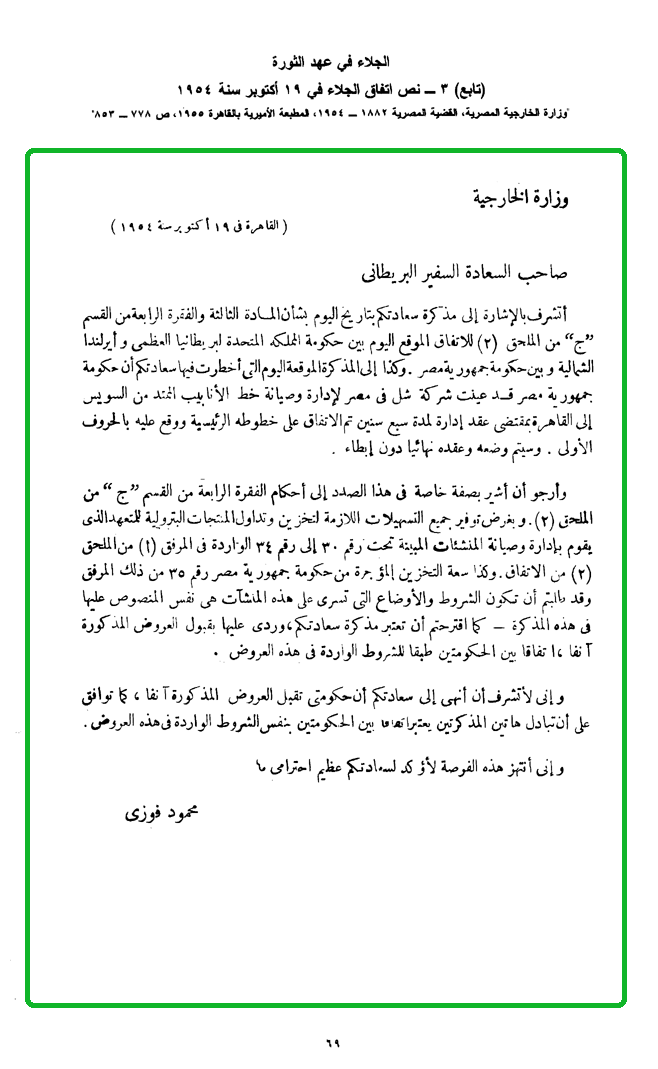 الجلاء في عهد الثورة
(تابع) ٣ ــ نص اتفاق الجلاء في ١٩ أكتوبر سنة ١٩٥٤
"وزارة الخارجية المصرية، القضية المصرية ١٨٨٢ ــ ١٩٥٤، المطبعة الأميرية بالقاهرة ١٩٥٥، ص ٧٧٨ ــ ٨٥٣"
وزارة الخارجية
( القاهرة فى ١٩ أكتوبر سنة ١٩٥٤ )
صاحب السعادة السفير البريطانى
أتشرف بالإشارة إلى مذكرة سعادتكم بتاريخ اليوم بشأن المادة الثالثة والفقرة الرابعة من القسم
"ج" من الملحق (٢) للاتفاق الموقع اليوم بين حكومة المملكة المتحدة لبريطانيا العظمى وأيرلندا
الشمالية وبين حكومة جمهورية مصر . وكذا إلى المذكرة الموقعة اليوم التى أخطرت فيها سعادتكم أن حكومة
جمهورية مصر قد عينت شركة شل فى مصر لإدارة وصيانة خط الأنابيب الممتد من السويس
إلى القاهرة بمقتضى عقد إدارة لمدة سبع سنين تم الاتفاق على خطوطه الرئيسية ووقع عليه بالحروف
الأولى . وسيتم وضعه وعقده نهائيا دون إبطاء .
وأرجو أن أشير بصفة خاصة فى هذا الصدد إلى أحكام الفقرة الرابعة من القسم "ج" من
الملحق (٢) . وبغرض توفير جميع التسهيلات اللازمة لتخزين وتداول المنتجات البترولية للمتعهد الذى
يقوم بإدارة وصيانة المنشئات المبينة تحت رقم ٣٠ إلى رقم ٣٤ الواردة فى المرفق (١) من الملحق
(٢) من الاتفاق . وكذا سعة التخزين المؤجرة من حكومة جمهورية مصر رقم ٣٥ من ذلك المرفق
وقد أن تكون الشروط والأوضاع التى تسرى على هذه المنشآت هى نفس المنصوص عليها
فى هذه المذكرة – كما اقترحتم أن تعتبر مذكرة سعادتكم، وردى عليها بقبول العروض المذكورة
آنفا ، اتفاقا بين الحكومتين طبقا للشروط الواردة فى هذه العروض .
وإنى لأتشرف أن أنهى إلى سعادتكم أن حكومتى تقبل العروض المذكورة آنفا ، كما توافق
على أن تبادل هاتين المذكرتين يعتبر اتفاقا بين الحكومتين بنفس الشروط الواردة فى هذه العروض .
وإنى أنتهز هذه الفرصة لأؤكد لسعادتكم عظيم احترامى
محمود فوزى
٦٩